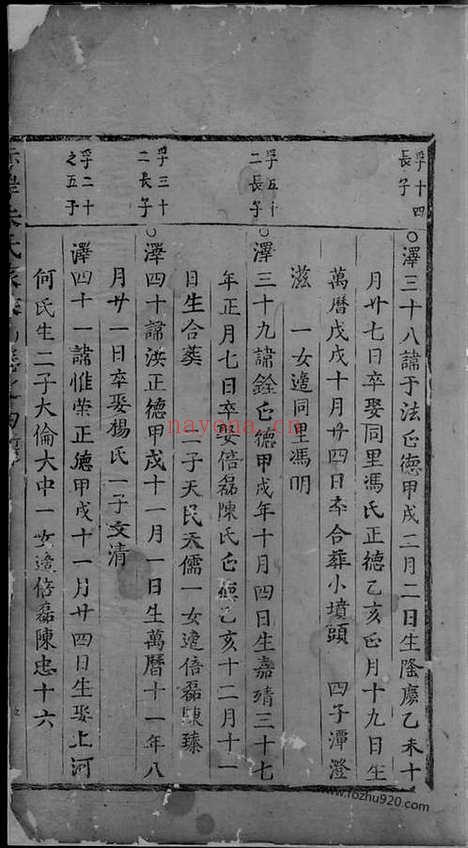 孚十四
長子
○澤三十八諱于法正德甲戌二月二日生隆慶乙未十
月廿七日卒娶同里馮氏正德乙亥正月十九日生
萬曆戊戌十月廿四日卒合葬小墳頭 四子潭澄
滋 一女適同里馮明
孚五十
二長子
○澤三十九諱銓正德甲戌年十月四日生嘉靖三十七
年正月七日卒娶倍磊陳氏正德乙亥十二月十一
日生合葬 二子天民天儒一女適倍磊陳臻
孚三十
二長子
○澤四十諱洪正德甲戌十一月一日生萬曆十一年八
月廿一日卒娶楊氏一子文清
孚二十
之五子
澤四十一諱惟榮正德甲戌十一月廿四日生娶上河
何氏生二子大倫大中一女適倍磊陳忠十六
nayona.cn
www.fozhu920.com